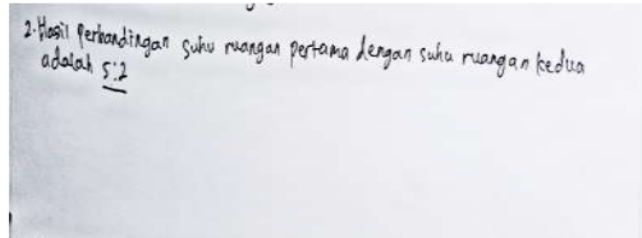 2. Hasil perbandingan suhu ruangan pertama dengan suhu ruangan kedua
adalah 5:2